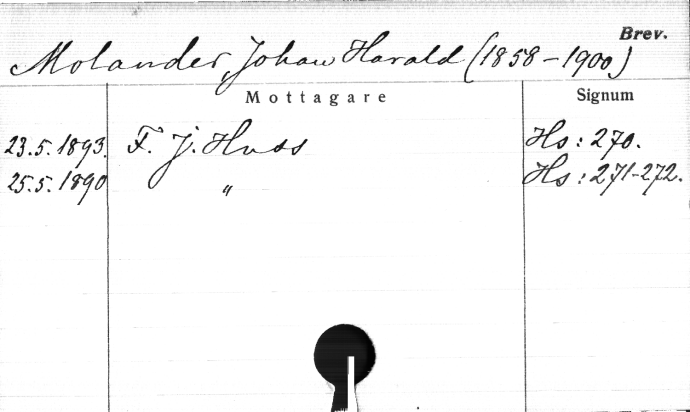 Brev.
Molander, Johan Harald (1858-1900)
Mottagare Signum
23.5.1893. F. J. Huss Hs: 270.
25.5.1890 " Hs: 271-272.